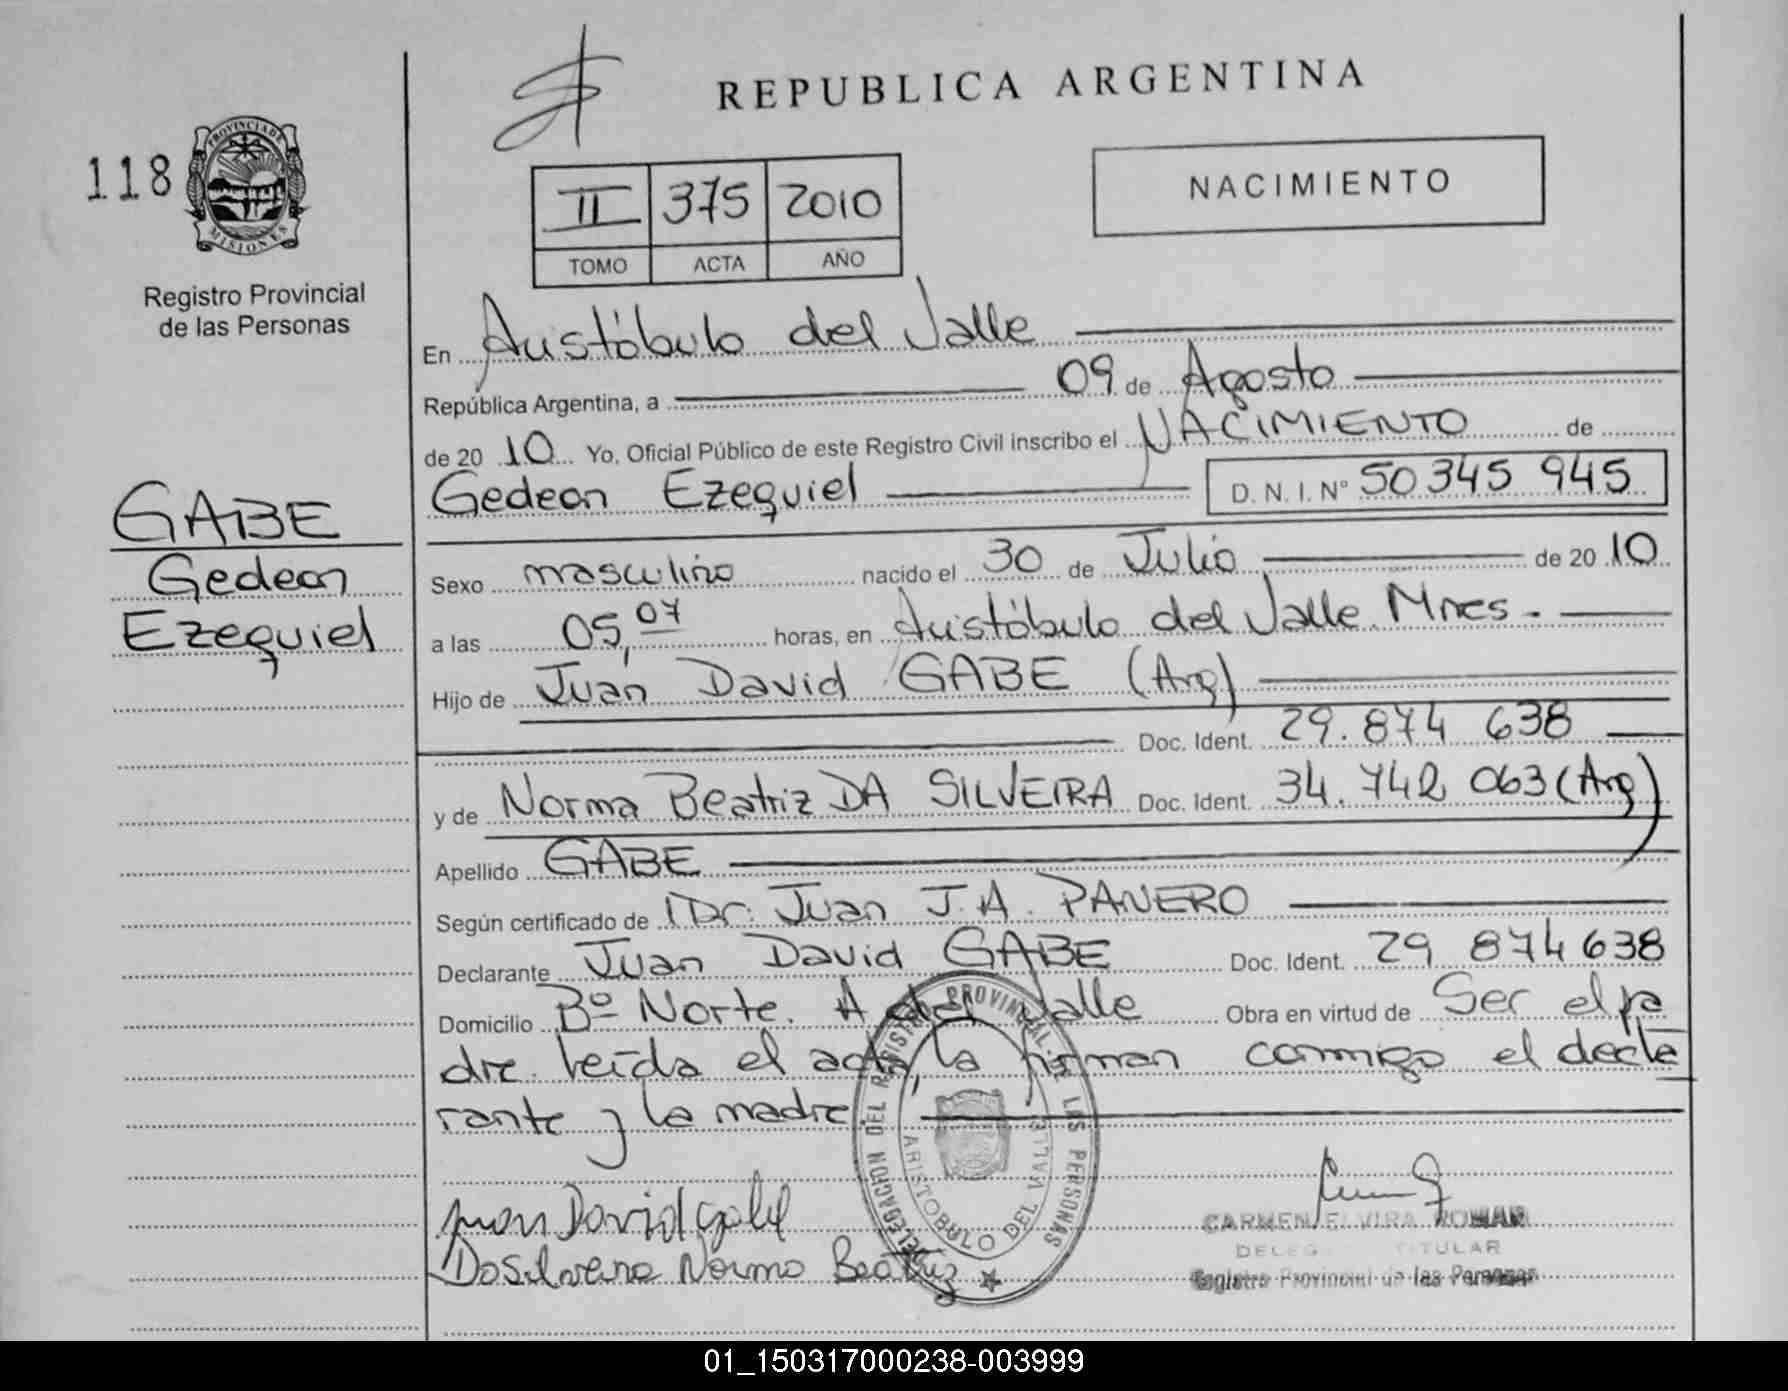 REPUBLICA ARGENTINA
118
PROVINCIA DE
MISIONES
Registro Provincial
de las Personas
II 375 2010
TOMO ACTA AÑO
NACIMIENTO
En Aristóbulo del Valle
República Argentina, a 09 de Agosto
de 2010 Yo, Oficial Público de este Registro Civil inscribo el NACIMIENTO de
Gedeon Ezequiel D. N. I. N° 50 345 945
GABE
Gedeon
Ezequiel
Sexo masculino nacido el 30 de Julio de 2010
a las 05,07 horas, en Aristóbulo del Valle. Mnes.
Hijo de Juan David GABE (Arg)
Doc. Ident. 29.874 638
y de Norma Beatriz DA SILVEIRA Doc. Ident. 34.742 063 (Arg)
Apellido GABE
Según certificado de Dr. Juan J.A. PANERO
Declarante Juan David GABE Doc. Ident. 29 874 638
Domicilio Bº Norte. A del Valle Obra en virtud de Ser el pa
dre. leída el acta, la firman conmigo el decla
rante y la madre
DELEGACION DEL REGISTRO PROVINCIAL DE LAS PERSONAS
ARISTOBULO DEL VALLE
Juan David Gabe
Da Silveira Norma Beatriz
CARMEN ELVIRA ROMAN
TITULAR
Registro Provincial de las Personas
01_150317000238-003999